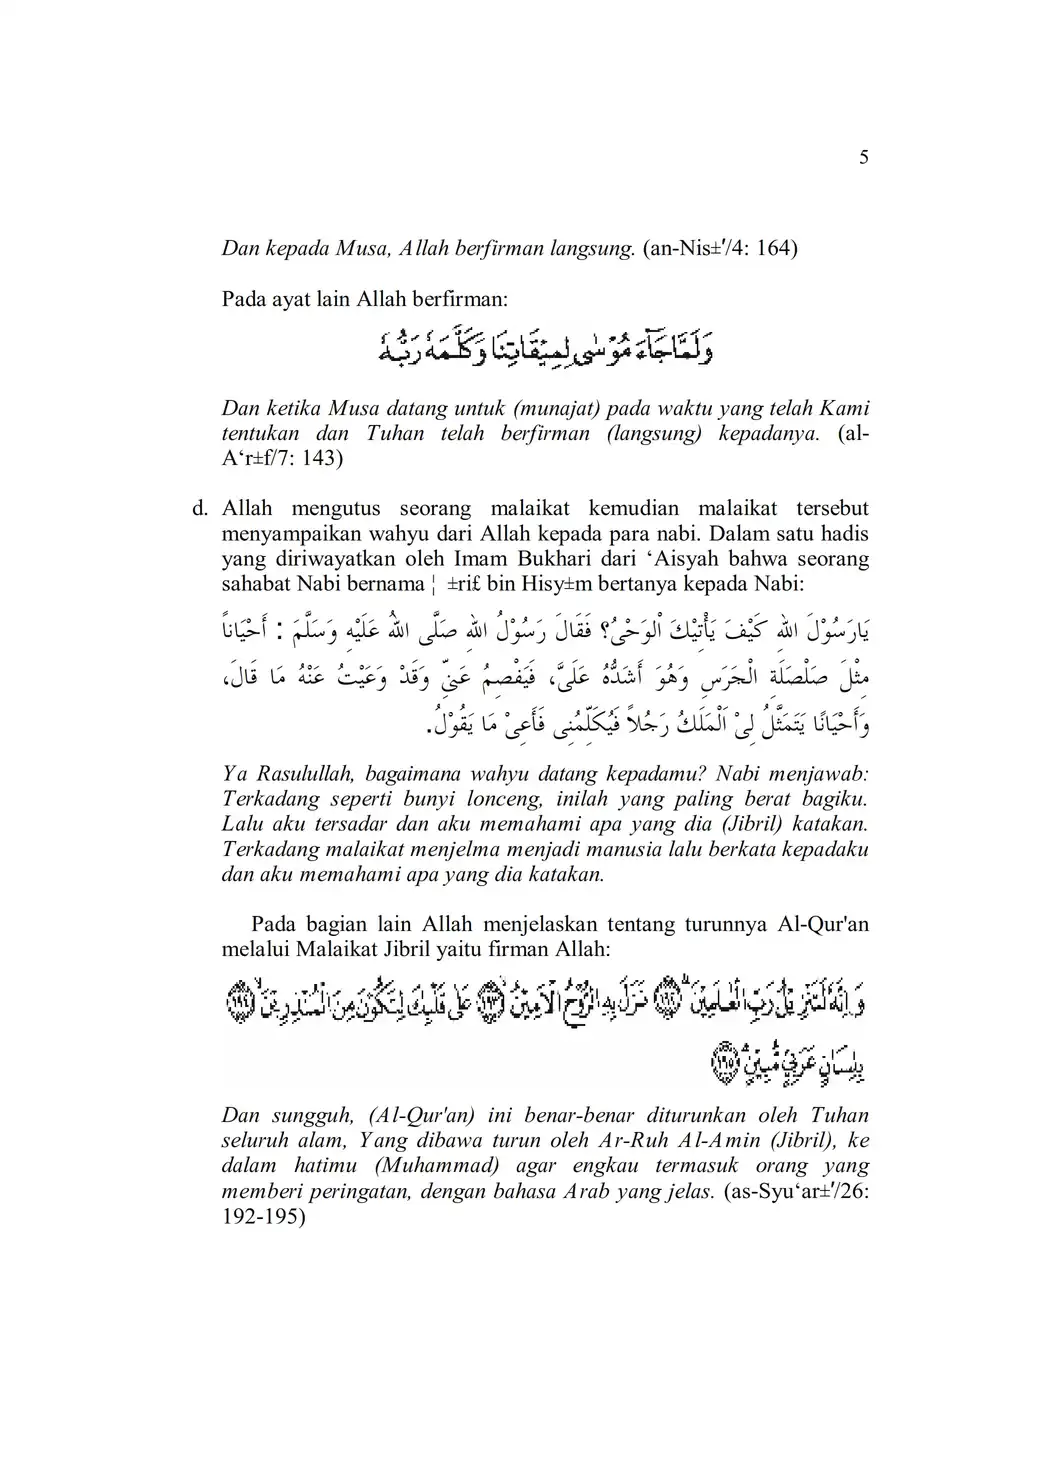 5
Dan kepada Musa, Allah berfirman langsung. (an-Nis±′/4: 164)
Pada ayat lain Allah berfirman:
وَلَمَّا جَآءَ مُوْسٰى لِمِيْقَاتِنَا وَكَلَّمَهٗ رَبُّهٗ
Dan ketika Musa datang untuk (munajat) pada waktu yang telah Kami
tentukan dan Tuhan telah berfirman (langsung) kepadanya. (al-
A‘r±f/7: 143)
d. Allah mengutus seorang malaikat kemudian malaikat tersebut
menyampaikan wahyu dari Allah kepada para nabi. Dalam satu hadis
yang diriwayatkan oleh Imam Bukhari dari ‘Aisyah bahwa seorang
sahabat Nabi bernama ¦ ±ri£ bin Hisy±m bertanya kepada Nabi:
يَارَسُوْلَ اللهِ كَيْفَ يَأْتِيْكَ اْلوَحْىُ؟ فَقَالَ رَسُوْلُ اللهِ صَلَّى اللهُ عَلَيْهِ وَسَلَّمَ : أَحْيَاناً
مِثْلَ صَلْصَلَةِ الْجَرَسِ وَهُوَ أَشَدُّهُ عَلَىَّ، فَيَفْصِمُ عَنِّى وَقَدْ وَعَيْتُ عَنْهُ مَا قَالَ،
وَأَحْيَانًا يَتَمَثَّلُ لِىْ اْلمَلَكُ رَجُلاً فَيُكَلِّمُنِى فَأَعِىْ مَا يَقُوْلُ.
Ya Rasulullah, bagaimana wahyu datang kepadamu? Nabi menjawab:
Terkadang seperti bunyi lonceng, inilah yang paling berat bagiku.
Lalu aku tersadar dan aku memahami apa yang dia (Jibril) katakan.
Terkadang malaikat menjelma menjadi manusia lalu berkata kepadaku
dan aku memahami apa yang dia katakan.
Pada bagian lain Allah menjelaskan tentang turunnya Al-Qur'an
melalui Malaikat Jibril yaitu firman Allah:
وَاِنَّهٗ لَتَنْزِيْلُ رَبِّ الْعٰلَمِيْنَ ۗ ١٩٢ نَزَلَ بِهِ الرُّوْحُ الْاَمِيْنُ ۙ ١٩٣ عَلٰى قَلْبِكَ لِتَكُوْنَ مِنَ الْمُنْذِرِيْنَ ۙ ١٩٤
بِلِسَانٍ عَرَبِيٍّ مُّبِيْنٍ ۗ ١٩٥
Dan sungguh, (Al-Qur'an) ini benar-benar diturunkan oleh Tuhan
seluruh alam, Yang dibawa turun oleh Ar-Ruh Al-Amin (Jibril), ke
dalam hatimu (Muhammad) agar engkau termasuk orang yang
memberi peringatan, dengan bahasa Arab yang jelas. (as-Syu‘ar±′/26:
192-195)